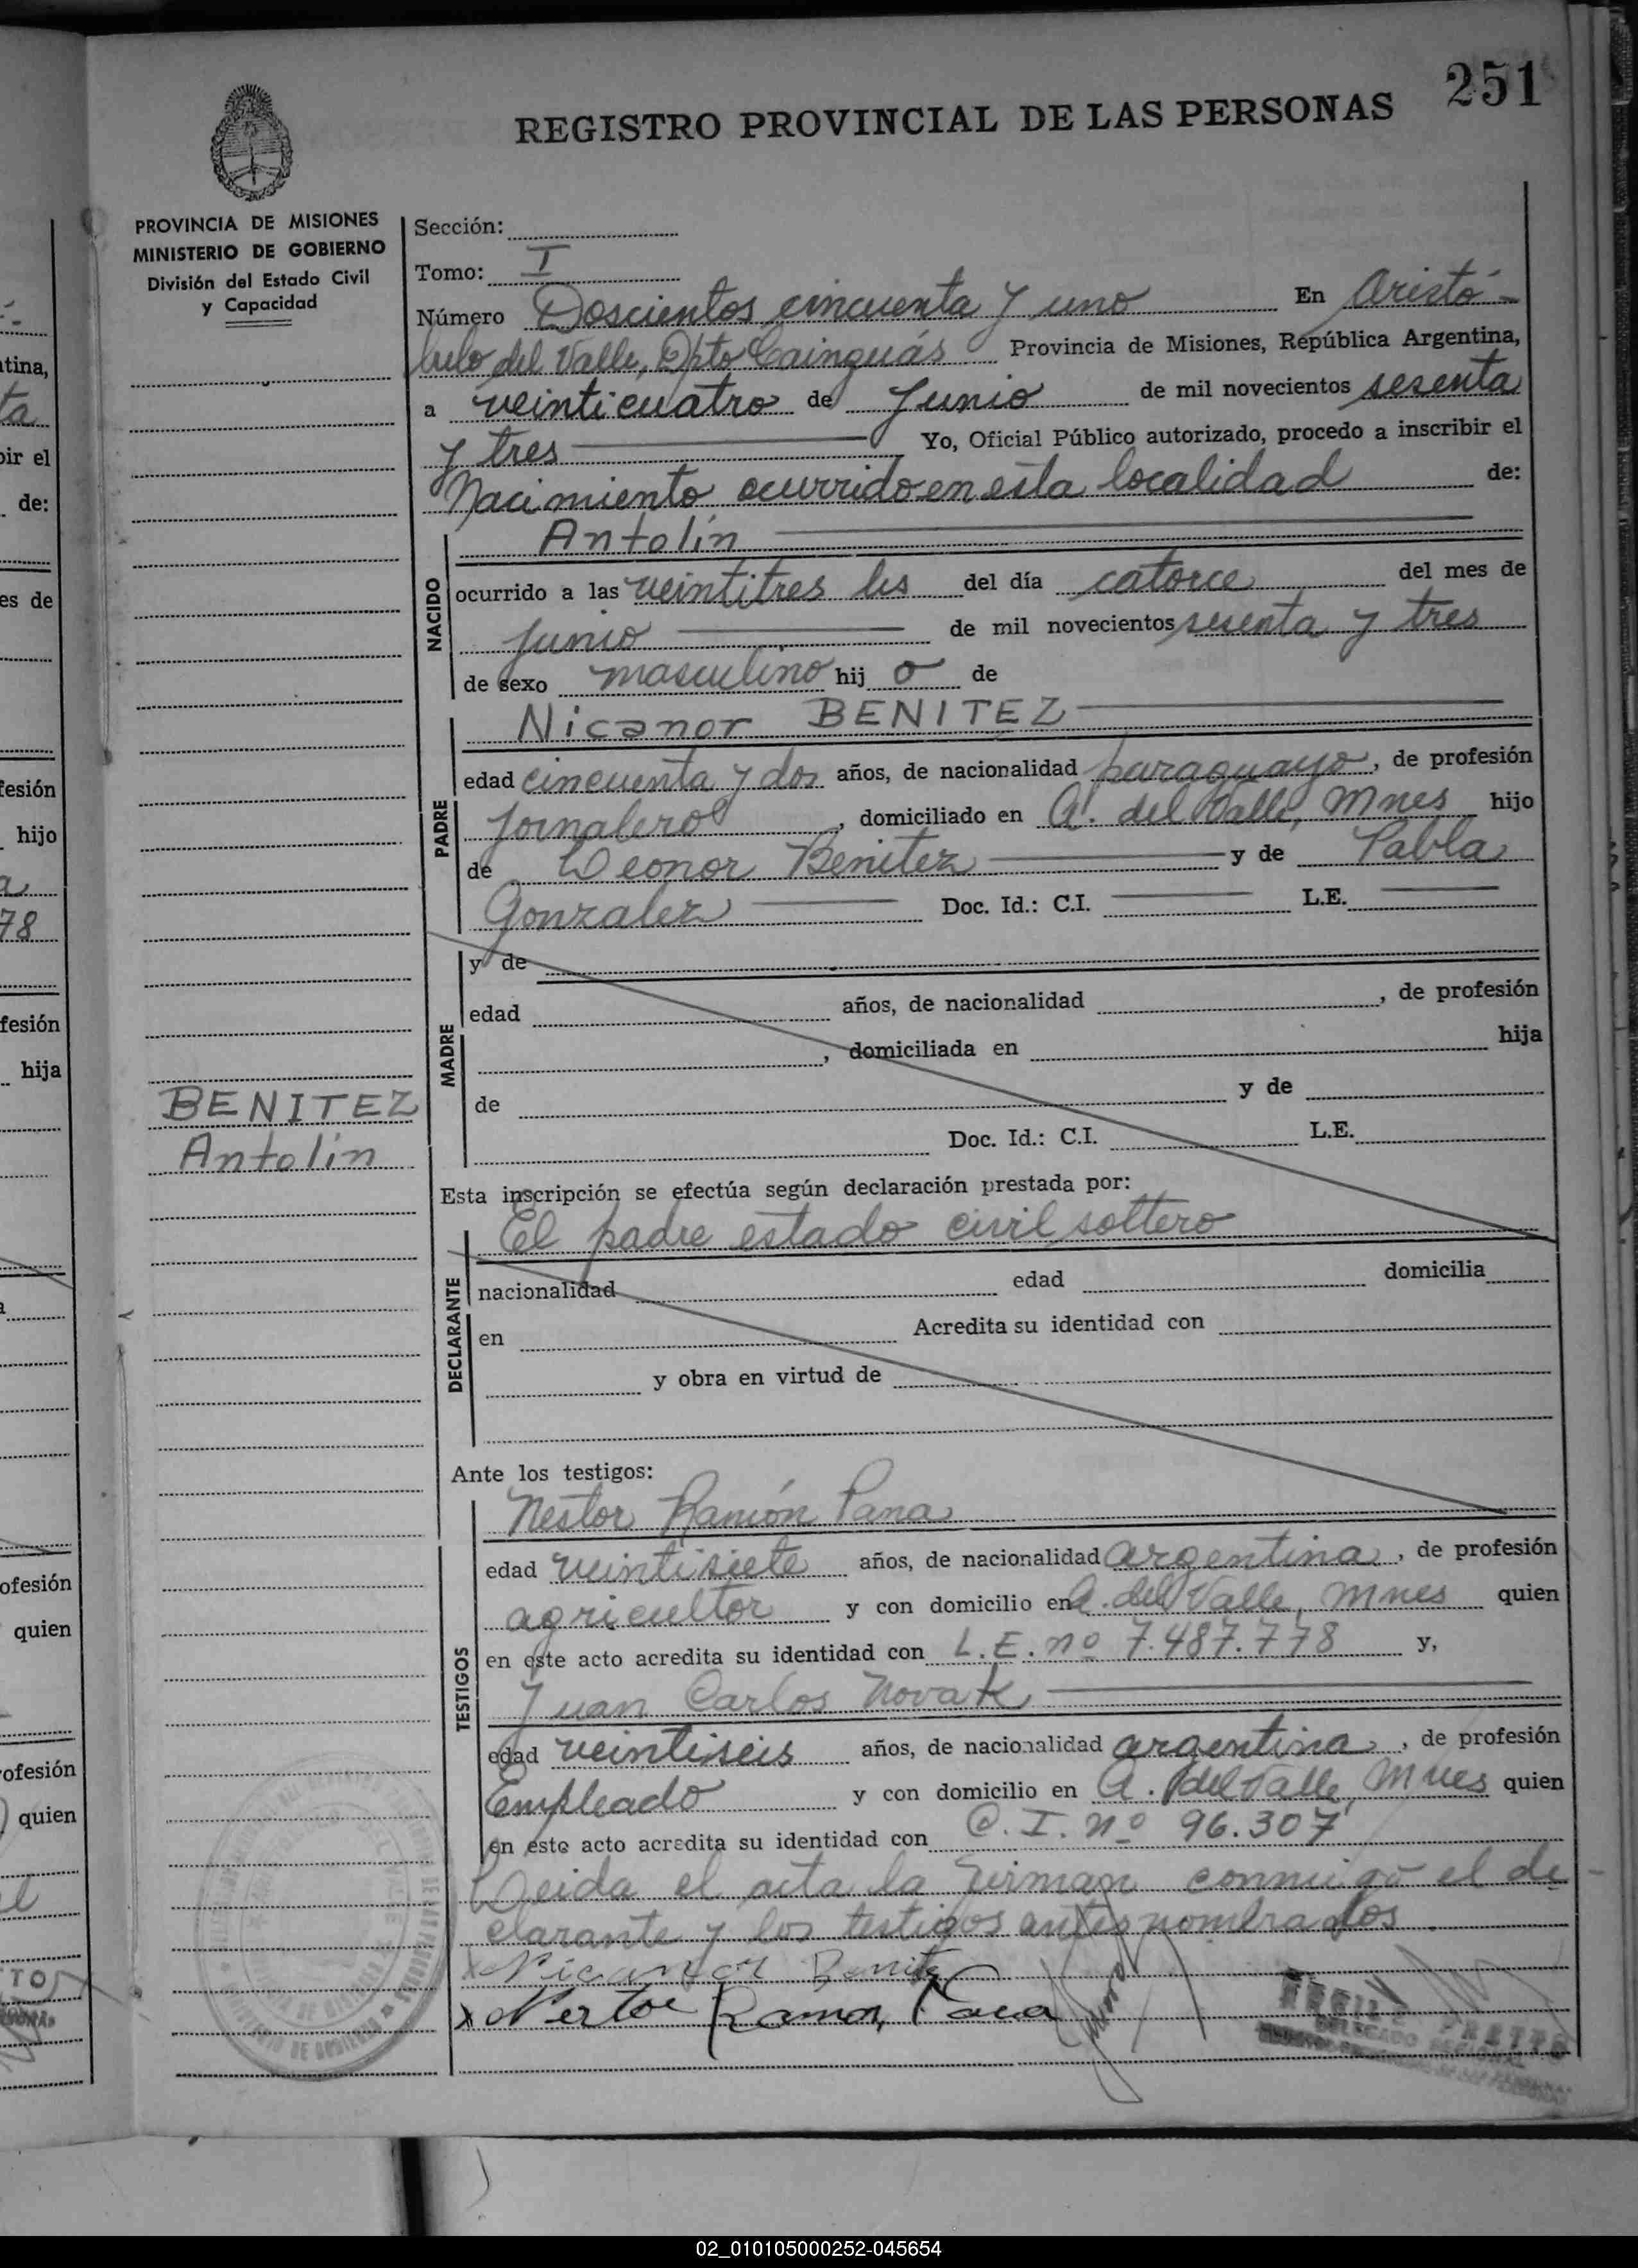 251
REGISTRO PROVINCIAL DE LAS PERSONAS
PROVINCIA DE MISIONES
MINISTERIO DE GOBIERNO
División del Estado Civil
y Capacidad
Sección:
Tomo: I
Número Doscientos cincuenta y uno En Aristó-
bulo del Valle, Dpto Cainguás Provincia de Misiones, República Argentina,
a veinticuatro de Junio de mil novecientos sesenta
y tres Yo, Oficial Público autorizado, procedo a inscribir el
Nacimiento ocurrido en esta localidad de:
NACIDO
Antolín
ocurrido a las veintitres hs del día catorce del mes de
Junio de mil novecientos sesenta y tres
de sexo masculino hij o de
PADRE
Nicanor BENITEZ
edad cincuenta y dos años, de nacionalidad paraguayo, de profesión
Jornalero, domiciliado en A. del Valle, Mnes hijo
de Leonor Benitez y de Pabla
Gonzalez Doc. Id.: C.I. L.E.
MADRE
y de
edad años, de nacionalidad , de profesión
, domiciliada en hija
de y de
Doc. Id.: C.I. L.E.
BENITEZ
Antolín
Esta inscripción se efectúa según declaración prestada por:
El padre estado civil soltero
DECLARANTE
nacionalidad edad domicilia
en Acredita su identidad con
y obra en virtud de
Ante los testigos:
TESTIGOS
Nestor Ramón Pana
edad veintisiete años, de nacionalidad argentina, de profesión
agricultor y con domicilio en A. del Valle, Mnes quien
en este acto acredita su identidad con L.E. nº 7.487.778 y,
Juan Carlos Novak
edad veintiseis años, de nacionalidad argentina, de profesión
Empleado y con domicilio en A. del Valle, Mnes quien
en este acto acredita su identidad con C.I. nº 96.307
Leida el acta la firman conmigo el de-
clarante y los testigos antes nombrados.
x Nicanor Benitez
x Nestor Ramon
DELEGADO
02_010105000252-045654